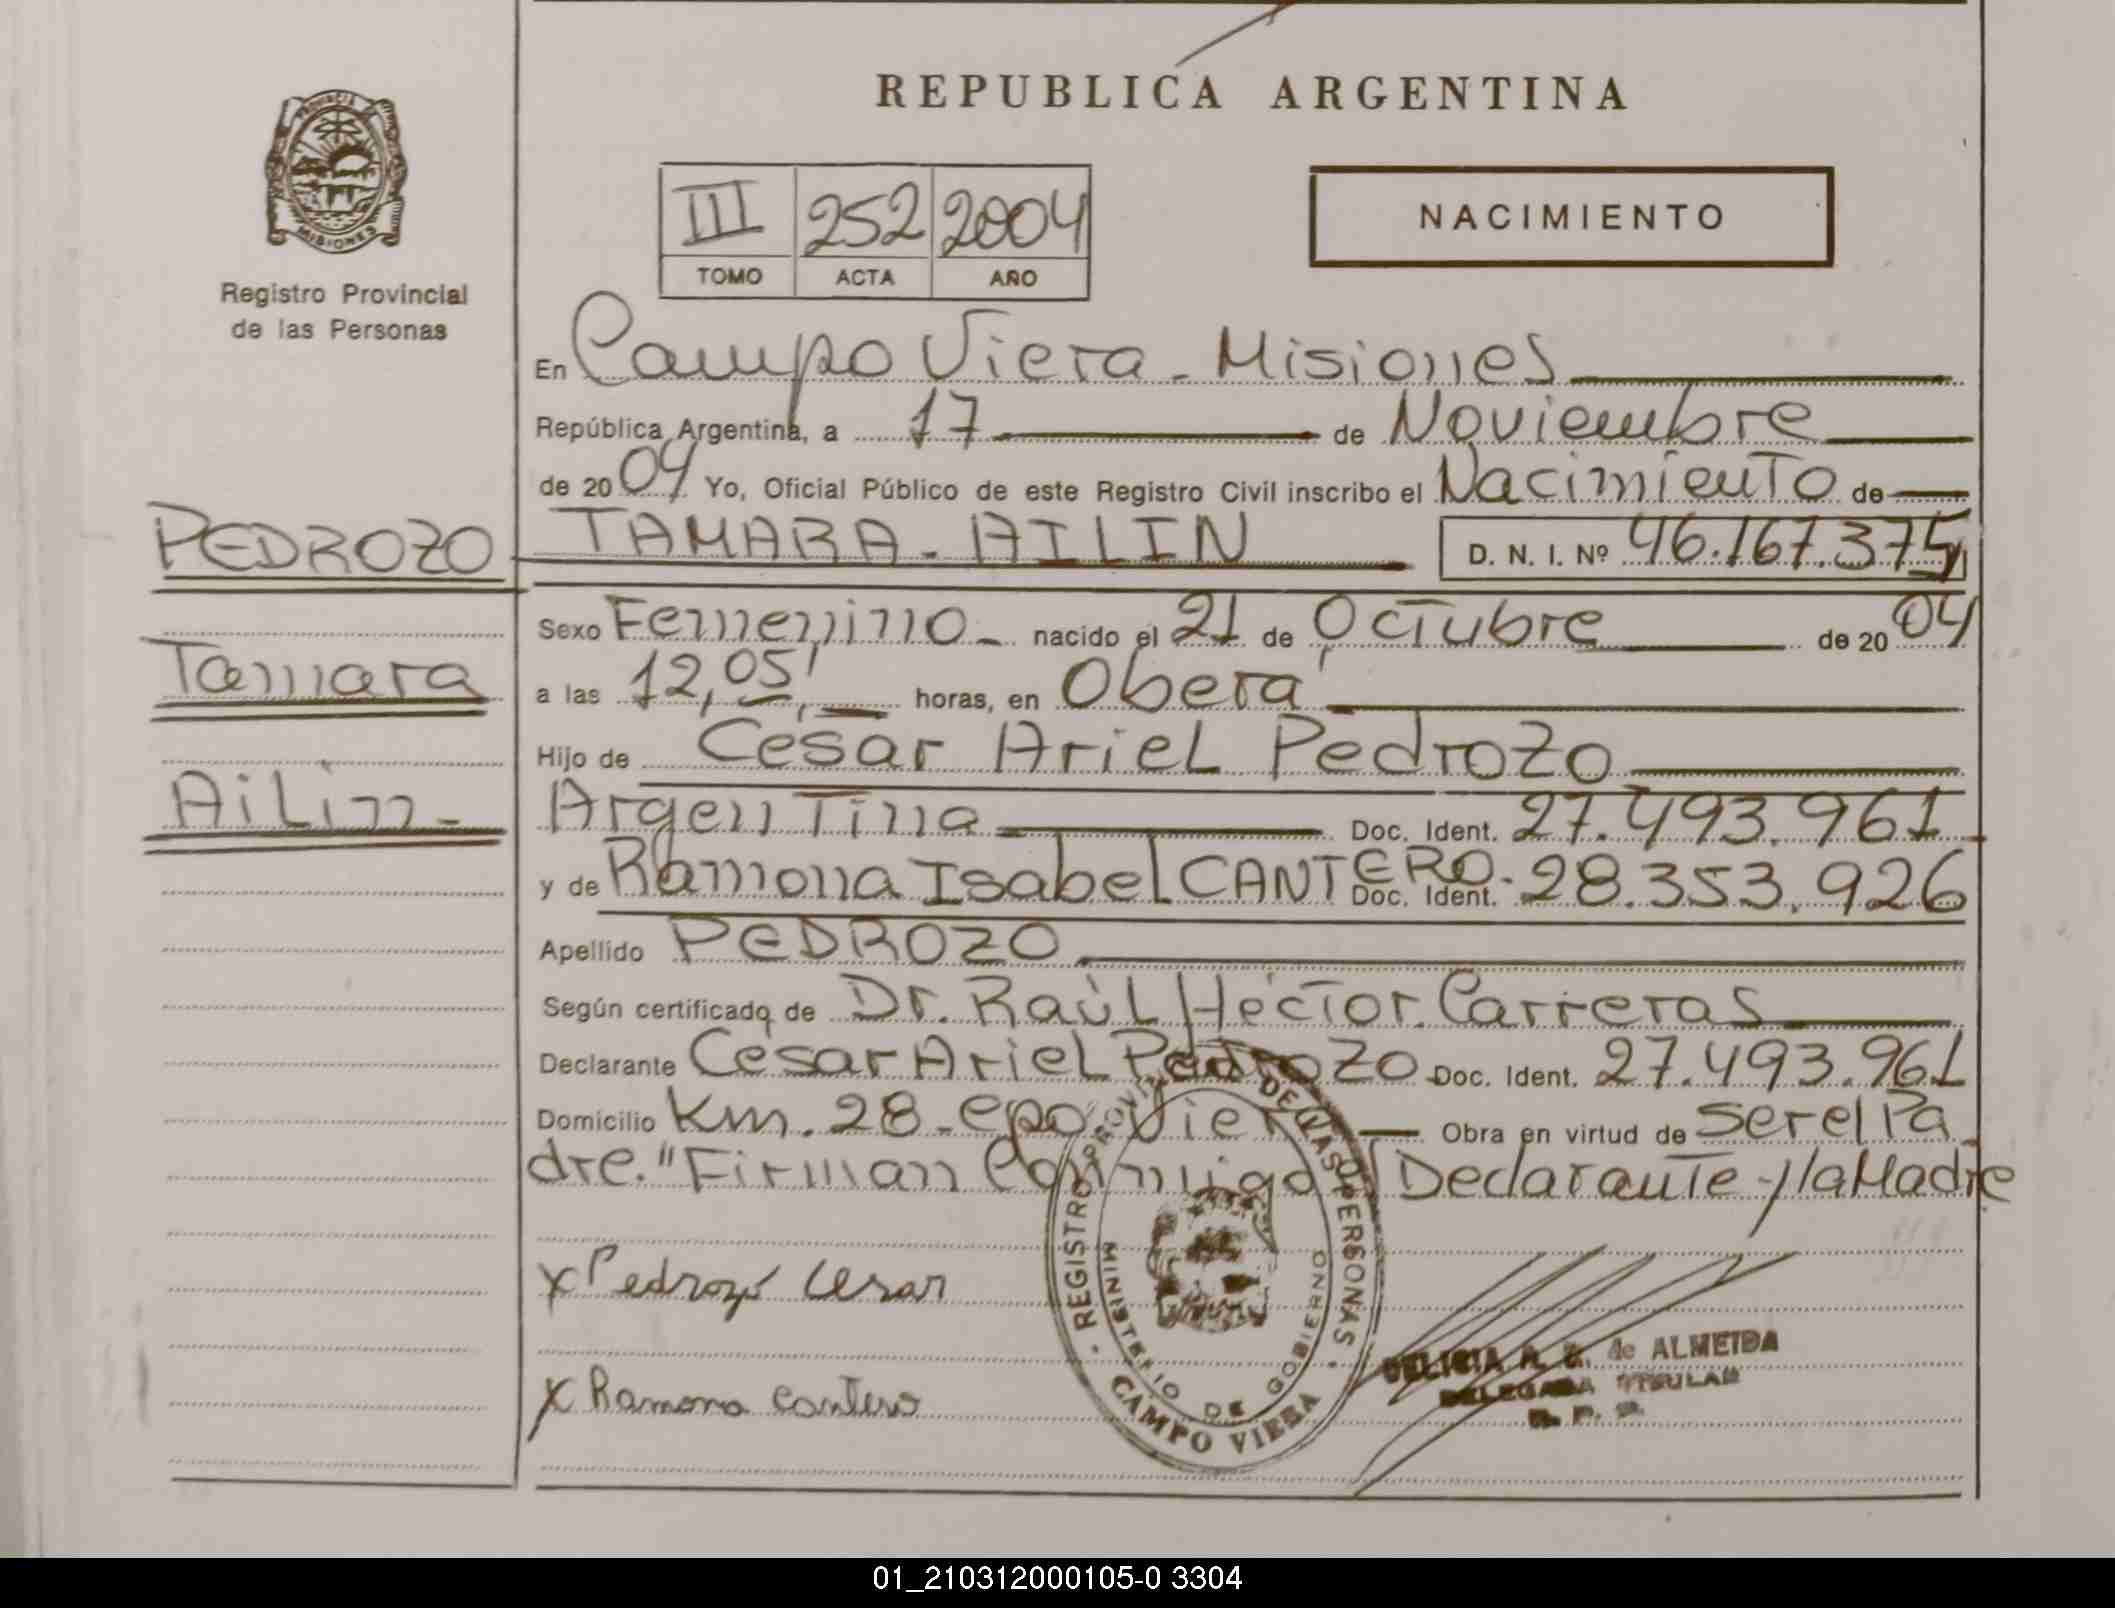 REPUBLICA ARGENTINA
PROVINCIA
MISIONES
Registro Provincial
de las Personas
III 252 2004
TOMO ACTA AÑO
NACIMIENTO
En Campo Viera - Misiones
República Argentina, a 17 de Noviembre
de 2004 Yo, Oficial Público de este Registro Civil inscribo el Nacimiento de
PEDROZO TAMARA - AILIN D. N. I. Nº 46.167.375
Sexo Femenino - nacido el 21 de Octubre de 2004
Tamara
a las 12,05' horas, en Oberá
Hijo de César Ariel Pedrozo
Ailin -
Argentina Doc. Ident. 27.493.961
y de Ramona Isabel CANTERO. Doc. Ident. 28.353.926
Apellido PEDROZO
Según certificado de Dr. Raúl Héctor Carreras
Declarante César Ariel Pedrozo Doc. Ident. 27.493.961
Domicilio Km. 28 - cpo. Viera Obra en virtud de ser el Pa
dre. "Firman Conmigo Declarante y la Madre
x Pedrozo Cesar
x Ramona Cantero
REGISTRO PROVINCIAL DE LAS PERSONAS
MINISTERIO DE GOBIERNO
CAMPO VIERA
DELICIA A. de ALMEIDA
DELEGADA TITULAR
01_210312000105-0 3304